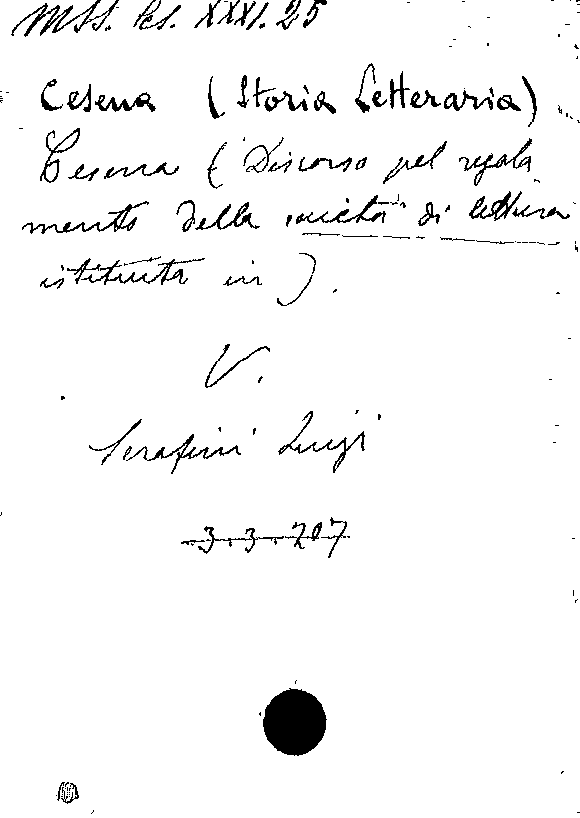 MSS. Ces. XXXI. 25
Cesena (Storia Letteraria)
Cesena (Discorso pel regola
mento della società di lettura
istituita in ).
V.
Serafini Luigi
3.3.207